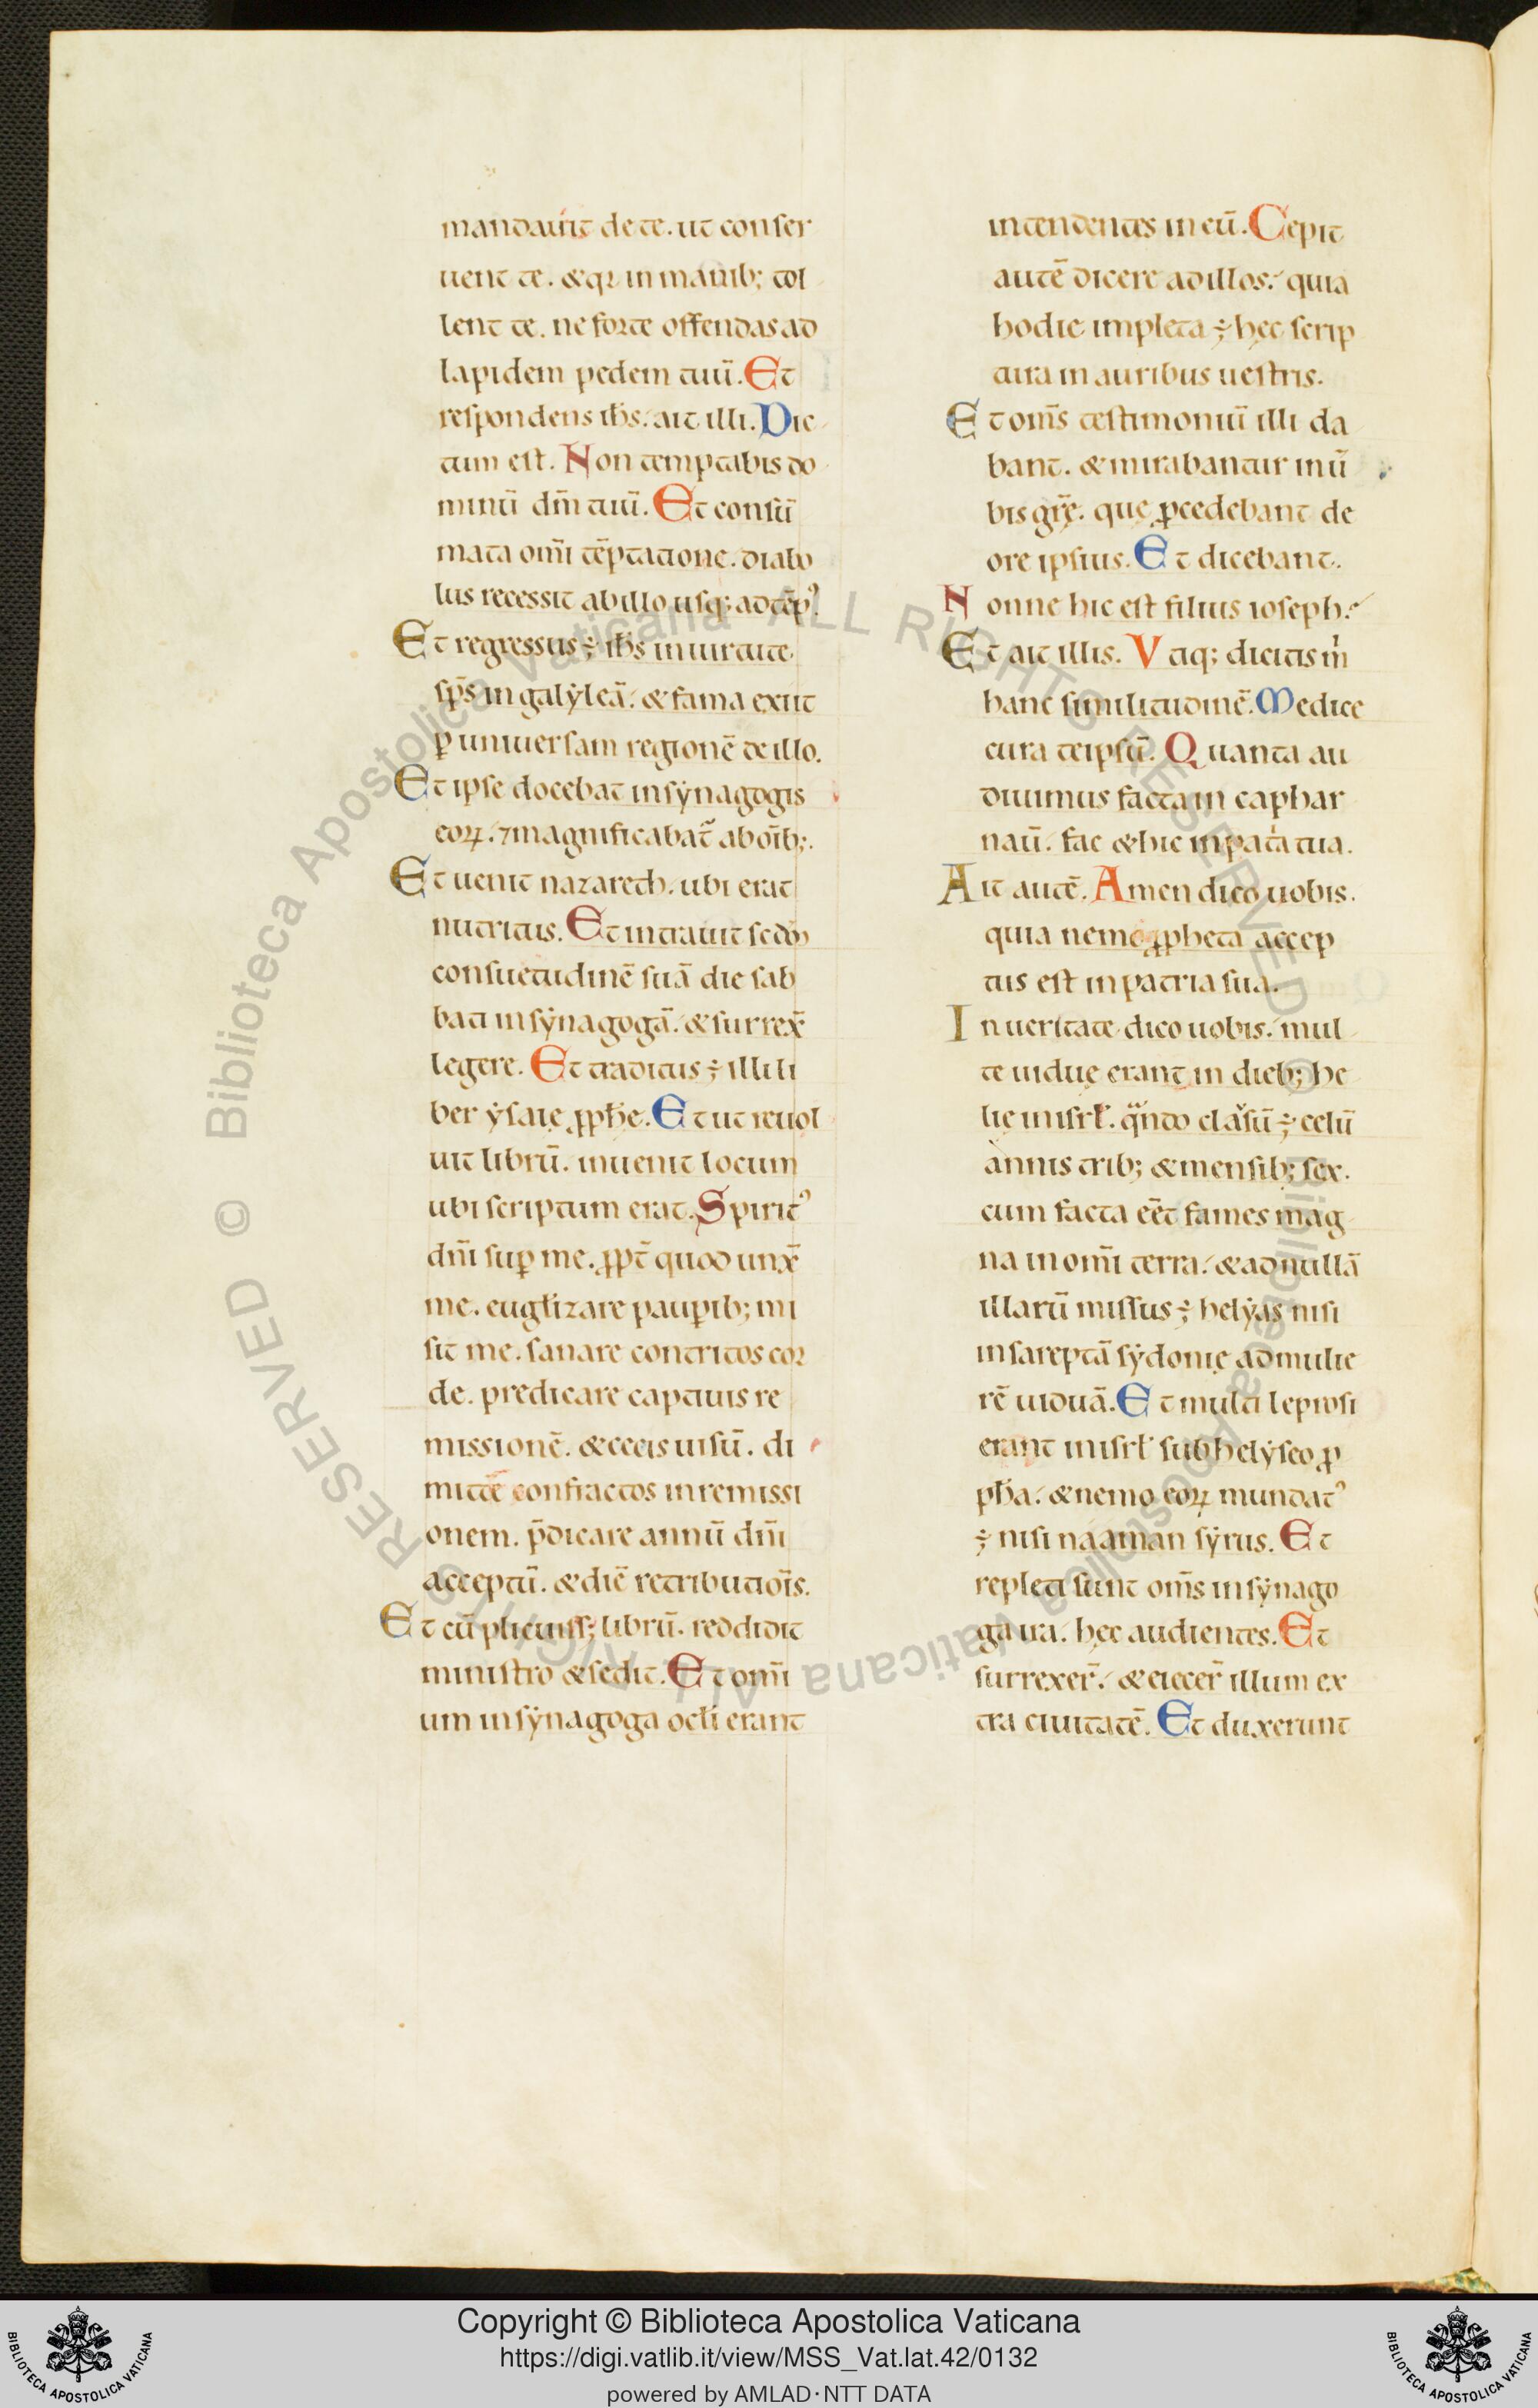 mandauit de te. ut conser
uent te. & qꝛ in manib; tol
lent te. ne forte offendas ad
lapidem pedem tuū. Et
respondens ihs̄. ait illi. Dic
tum est. Non temptabis do
minū dm̄ tuū. Et consū
mata om̄i tēptatione. diabo
lus recessit ab illo usq; ad tēpꝰ.
Et regressus ÷ ihs̄ in uirtute
sp̄s in galẏleā. & fama exiit
ꝑ uniuersam regionē de illo.
Et ipse docebat in sẏnagogis
eoꝝ. ⁊ magnificabat᷑ ab oīb;.
Et uenit nazareth. ubi erat
nutritus. Et intrauit scd̄ō
consuetudinē suā die sab
bati in sẏnagogā. & surrex̄
legere. Et traditus ÷ illi li
ber ẏsaię ꝓphē. Et ut reuol
uit librū. inuenit locum
ubi scriptum erat. Spiritꝰ
dn̄i suꝑ me. ꝓpt̄ quod unx̄
me. euglizare pauꝑib; mi
sit me. sanare contritos cor
de. predicare captiuis re
missionē. & cecis uisū. di
mittē confractos in remissi
onem. p̄dicare annū dn̄i
acceptū. & diē retributiōis.
Et cū plicuiss; librū. reddidit
ministro & sedit. Et omī
um in sẏnagoga ocli erant
intendentes in eū. Cepit
autē dicere ad illos. quia
hodie impleta ÷ hęc scrip
tura in auribus uestris.
Et om̄s testimoniū illi da
bant. & mirabantur in ū
bis gr̄ę. quę ꝓcedebant de
ore ipsius. Et dicebant.
Nonne hic est filius ioseph.
Et ait illis. Vtiq; dicitis m̍
hanc similitudinē. Medice
cura teipsū. Quanta au
diuimus facta in caphar
naū. fac & hic in pat̍a tua.
Ait autē. Amen dico uobis.
quia nemo ꝓpheta accep
tus est in patria sua.
In ueritate dico uobis. mul
te uiduę erant in dieb; he
lię in isrł. qn̄do clasū ÷ celū
annis trib; & mensib; sex.
cum facta eēt fames mag
na in om̄i terra. & ad nullā
illarū missus ÷ helẏas nisi
in sareptā sẏdonię ad mulie
rē uiduā. Et multi leprosi
erant in isrł sub helẏseo ꝓ
pha. & nemo eoꝝ mundatꝰ
÷ nisi naaman sẏrus. Et
repleti sunt om̄s in sẏnago
ga ira. hec audientes. Et
surrexer̄. & eiecer̄ illum ex
tra ciuitatē. Et duxerunt
© Biblioteca Apostolica Vaticana ALL RIGHTS RESERVED © Biblioteca Apostolica Vaticana ALL RIGHTS RESERVED
BIBLIOTECA APOSTOLICA VATICANA
Copyright © Biblioteca Apostolica Vaticana
https://digi.vatlib.it/view/MSS_Vat.lat.42/0132
powered by AMLAD·NTT DATA
BIBLIOTECA APOSTOLICA VATICANA